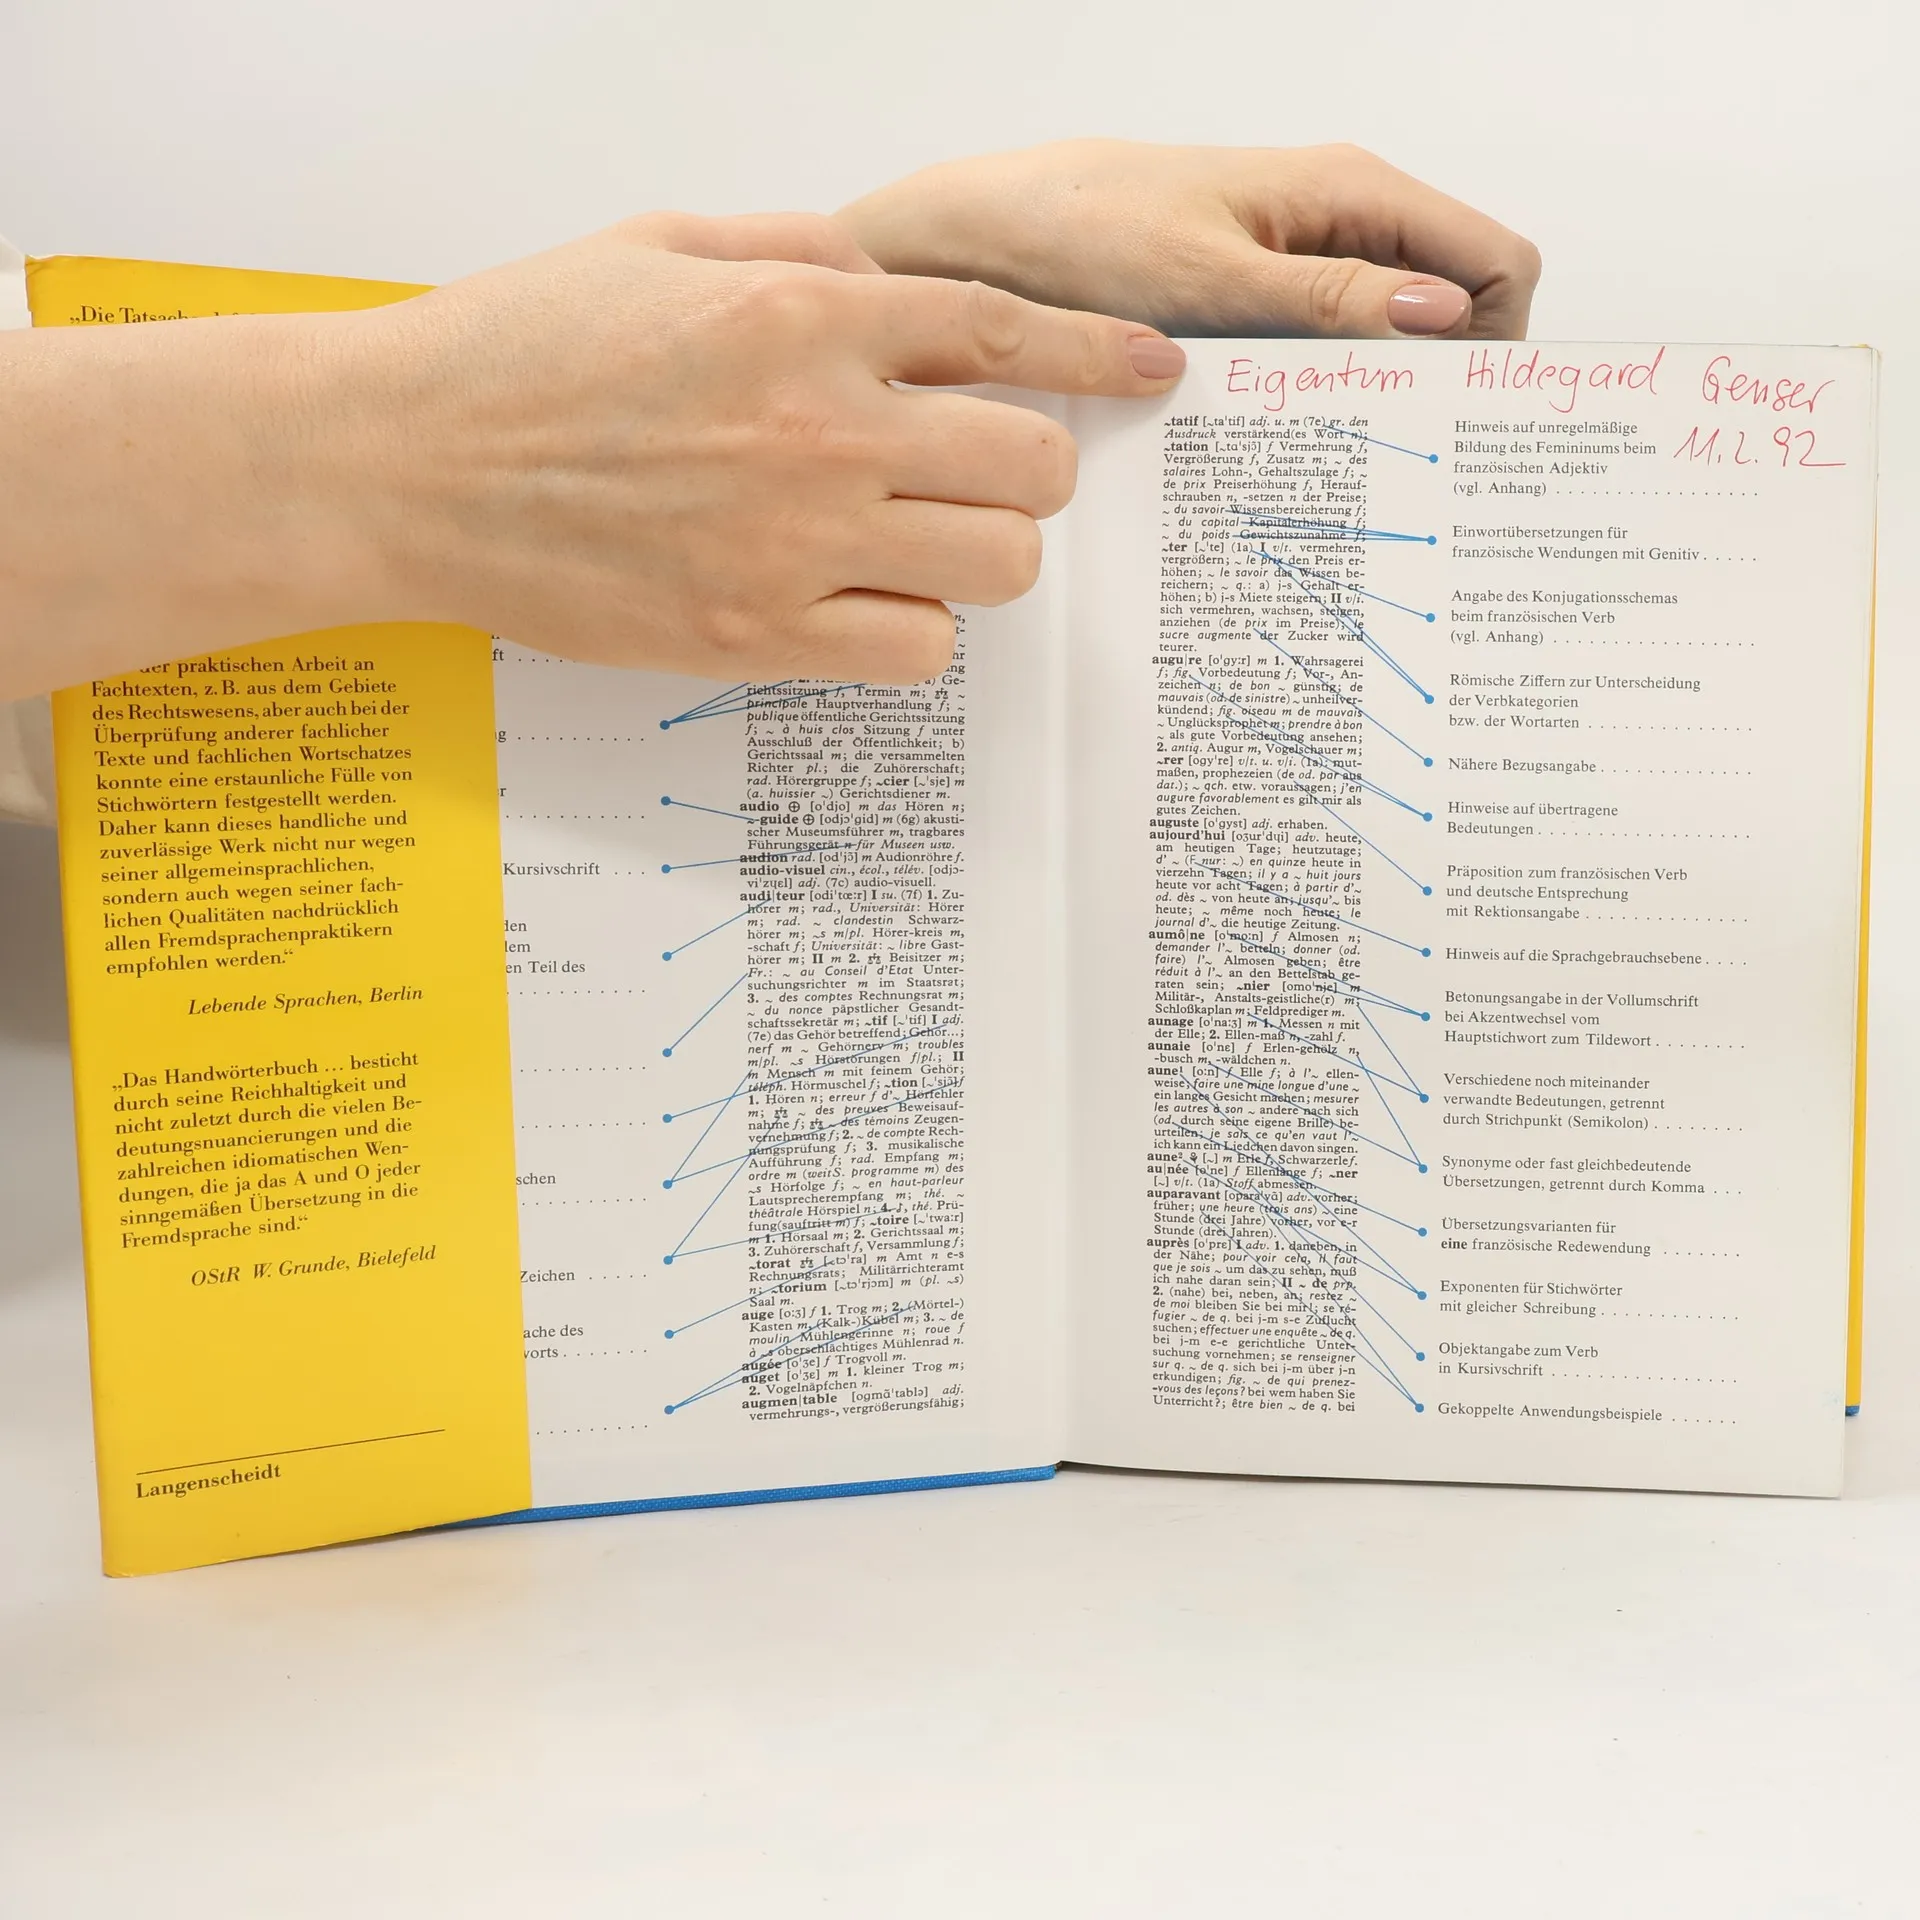 „Die
der praktischen Arbeit an
Fachtexten, z. B. aus dem Gebiete
des Rechtswesens, aber auch bei der
Überprüfung anderer fachlicher
Texte und fachlichen Wortschatzes
konnte eine erstaunliche Fülle von
Stichwörtern festgestellt werden.
Daher kann dieses handliche und
zuverlässige Werk nicht nur wegen
seiner allgemeinsprachlichen,
sondern auch wegen seiner fach-
lichen Qualitäten nachdrücklich
allen Fremdsprachenpraktikern
empfohlen werden.“
Lebende Sprachen, Berlin
„Das Handwörterbuch ... besticht
durch seine Reichhaltigkeit und
nicht zuletzt durch die vielen Be-
deutungsnuancierungen und die
zahlreichen idiomatischen Wen-
dungen, die ja das A und O jeder
sinngemäßen Übersetzung in die
Fremdsprache sind.“
OStR W. Grunde, Bielefeld
Langenscheidt
Kursivschrift . . .
en Teil des
schen
Zeichen . . . . .
ache des
richtssitzung f, Termin m; ~
principale Hauptverhandlung f; ~
publique öffentliche Gerichtssitzung
f; ~ à huis clos Sitzung f unter
Ausschluß der Öffentlichkeit; b)
Gerichtssaal m; die versammelten
Richter pl.; die Zuhörerschaft;
rad. Hörergruppe f; ~cier [~'sje] m
(a. huissier ~) Gerichtsdiener m.
audio ⊕ [o'djo] m das Hören n;
~-guide ⊕ [odjɔ'gid] m (6g) akusti-
scher Museumsführer m, tragbares
Führungsgerät n für Museen usw.
audion rad. [od'jɔ̃] m Audionröhre f.
audio-visuel cin., écol., télév. [odjɔ-
vi'zɥɛl] adj. (7c) audio-visuell.
audi|teur [odi'tœ:r] I su. (7f) 1. Zu-
hörer m; rad., Universität: Hörer
m; rad. ~ clandestin Schwarz-
hörer m; ~s m/pl. Hörer-kreis m,
-schaft f; Universität: ~ libre Gast-
hörer m; II m 2. Beisitzer m;
Fr.: ~ au Conseil d'Etat Unter-
suchungsrichter m im Staatsrat;
3. ~ des comptes Rechnungsrat m;
~ du nonce päpstlicher Gesandt-
schaftssekretär m; ~tif [~'tif] I adj.
(7e) das Gehör betreffend; Gehör...;
nerf m ~ Gehörnerv m; troubles
m/pl. ~s Hörstörungen f/pl.; II
m Mensch m mit feinem Gehör;
téléph. Hörmuschel f; ~tion [~'sjɔ̃] f
1. Hören n; erreur f d'~ Hörfehler
m; ~ des preuves Beweisauf-
nahme f; ~ des témoins Zeugen-
vernehmung f; 2. ~ de compte Rech-
nungsprüfung f; 3. musikalische
Aufführung f; rad. Empfang m;
ordre m (weitS. programme m) des
~s Hörfolge f; ~ en haut-parleur
Lautsprecherempfang m; thé. ~
théâtrale Hörspiel n; 4. ♪, thé. Prü-
fung(sauftritt m) f; ~toire [~'twa:r]
m 1. Hörsaal m; 2. Gerichtssaal m;
3. Zuhörerschaft f, Versammlung f;
~torat [~tɔ'ra] m Amt n e-s
Rechnungsrats; Militärrichteramt
n; ~torium [~tɔ'rjɔm] m (pl. ~s)
Saal m.
auge [o:ʒ] f 1. Trog m; 2. (Mörtel-)
Kasten m, (Kalk-)Kübel m; 3. ~ de
moulin Mühlengerinne n; roue f
à ~s oberschlächtiges Mühlenrad n.
augée [o'ʒe] f Trogvoll m.
auget [o'ʒɛ] m 1. kleiner Trog m;
2. Vogelnäpfchen n.
augmen|table [ogmɑ̃'tablə] adj.
vermehrungs-, vergrößerungsfähig;
Eigentum Hildegard Genser
11. 2. 92
~tatif [~ta'tif] adj. u. m (7e) gr. den
Ausdruck verstärkend(es Wort n);
~tation [~ta'sjɔ̃] f Vermehrung f,
Vergrößerung f, Zusatz m; ~ des
salaires Lohn-, Gehaltszulage f; ~
de prix Preiserhöhung f, Herauf-
schrauben n, -setzen n der Preise;
~ du savoir Wissensbereicherung f;
~ du capital Kapitalerhöhung f;
~ du poids Gewichtszunahme f;
~ter [~'te] (1a) I v/t. vermehren,
vergrößern; ~ le prix den Preis er-
höhen; ~ le savoir das Wissen be-
reichern; ~ q.: a) j-s Gehalt er-
höhen; b) j-s Miete steigern; II v/i.
sich vermehren, wachsen, steigen,
anziehen (de prix im Preise); le
sucre augmente der Zucker wird
teurer.
augu|re [o'gy:r] m 1. Wahrsagerei
f; fig. Vorbedeutung f; Vor-, An-
zeichen n; de bon ~ günstig; de
mauvais (od. de sinistre) ~ unheilver-
kündend; fig. oiseau m de mauvais
~ Unglücksprophet m; prendre à bon
~ als gute Vorbedeutung ansehen;
2. antiq. Augur m, Vogelschauer m;
~rer [ogy're] v/t. u. v/i. (1a): mut-
maßen, prophezeien (de od. par aus
dat.); ~ qch. etw. voraussagen; j'en
augure favorablement es gilt mir als
gutes Zeichen.
auguste [o'gyst] adj. erhaben.
aujourd'hui [oʒur'dɥi] adv. heute,
am heutigen Tage; heutzutage;
d' ~ (F nur: ~) en quinze heute in
vierzehn Tagen; il y a ~ huit jours
heute vor acht Tagen; à partir d'~
od. dès ~ von heute an; jusqu'~ bis
heute; ~ même noch heute; le
journal d'~ die heutige Zeitung.
aumô|ne [o'mo:n] f Almosen n;
demander l'~ betteln; donner (od.
faire) l'~ Almosen geben; être
réduit à l'~ an den Bettelstab ge-
raten sein; ~nier [omo'nje] m
Militär-, Anstalts-geistliche(r) m;
Schloßkaplan m; Feldprediger m.
aunage [o'na:ʒ] m 1. Messen n mit
der Elle; 2. Ellen-maß n, -zahl f.
aunaie [o'nɛ] f Erlen-gehölz n,
-busch m, -wäldchen n.
aune¹ [o:n] f Elle f; à l'~ ellen-
weise; faire une mine longue d'une ~
ein langes Gesicht machen; mesurer
les autres à son ~ andere nach sich
(od. durch seine eigene Brille) be-
urteilen; je sais ce qu'en vaut l'~
ich kann ein Liedchen davon singen.
aune² [~] m Erle f, Schwarzerle f.
au|née [o'ne] f Ellenlänge f; ~ner
[~] v/t. (1a) Stoff abmessen.
auparavant [opara'vɑ̃] adv. vorher;
früher; une heure (trois ans) ~ eine
Stunde (drei Jahre) vorher, vor e-r
Stunde (drei Jahren).
auprès [o'prɛ] I adv. 1. daneben, in
der Nähe; pour voir cela, il faut
que je sois ~ um das zu sehen, muß
ich nahe daran sein; II ~ de prp.
2. (nahe) bei, neben, an; restez ~
de moi bleiben Sie bei mir!; se ré-
fugier ~ de q. bei j-m s-e Zuflucht
suchen; effectuer une enquête ~ de q.
bei j-m e-e gerichtliche Unter-
suchung vornehmen; se renseigner
sur q. ~ de q. sich bei j-m über j-n
erkundigen; fig. ~ de qui prenez-
-vous des leçons? bei wem haben Sie
Unterricht?; être bien ~ de q. bei
Hinweis auf unregelmäßige
Bildung des Femininums beim
französischen Adjektiv
(vgl. Anhang) . . . . . . . . . . . . . . . . .
Einwortübersetzungen für
französische Wendungen mit Genitiv . . . . .
Angabe des Konjugationsschemas
beim französischen Verb
(vgl. Anhang) . . . . . . . . . . . . . . . . .
Römische Ziffern zur Unterscheidung
der Verbkategorien
bzw. der Wortarten . . . . . . . . . . . . . .
Nähere Bezugsangabe . . . . . . . . . . . . .
Hinweise auf übertragene
Bedeutungen . . . . . . . . . . . . . . . . . .
Präposition zum französischen Verb
und deutsche Entsprechung
mit Rektionsangabe . . . . . . . . . . . . . .
Hinweis auf die Sprachgebrauchsebene . . . .
Betonungsangabe in der Vollumschrift
bei Akzentwechsel vom
Hauptstichwort zum Tildewort . . . . . . . .
Verschiedene noch miteinander
verwandte Bedeutungen, getrennt
durch Strichpunkt (Semikolon) . . . . . . . .
Synonyme oder fast gleichbedeutende
Übersetzungen, getrennt durch Komma . . .
Übersetzungsvarianten für
eine französische Redewendung . . . . . . .
Exponenten für Stichwörter
mit gleicher Schreibung . . . . . . . . . . . .
Objektangabe zum Verb
in Kursivschrift . . . . . . . . . . . . . . . . .
Gekoppelte Anwendungsbeispiele . . . . . .